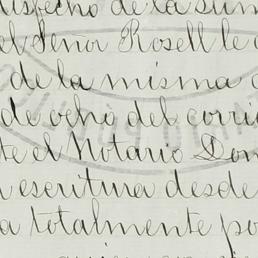 de la sum
el Señor Rosell le
de la misma
de ocho del corri
te el Notario Don
escritura desde
a totalmente po